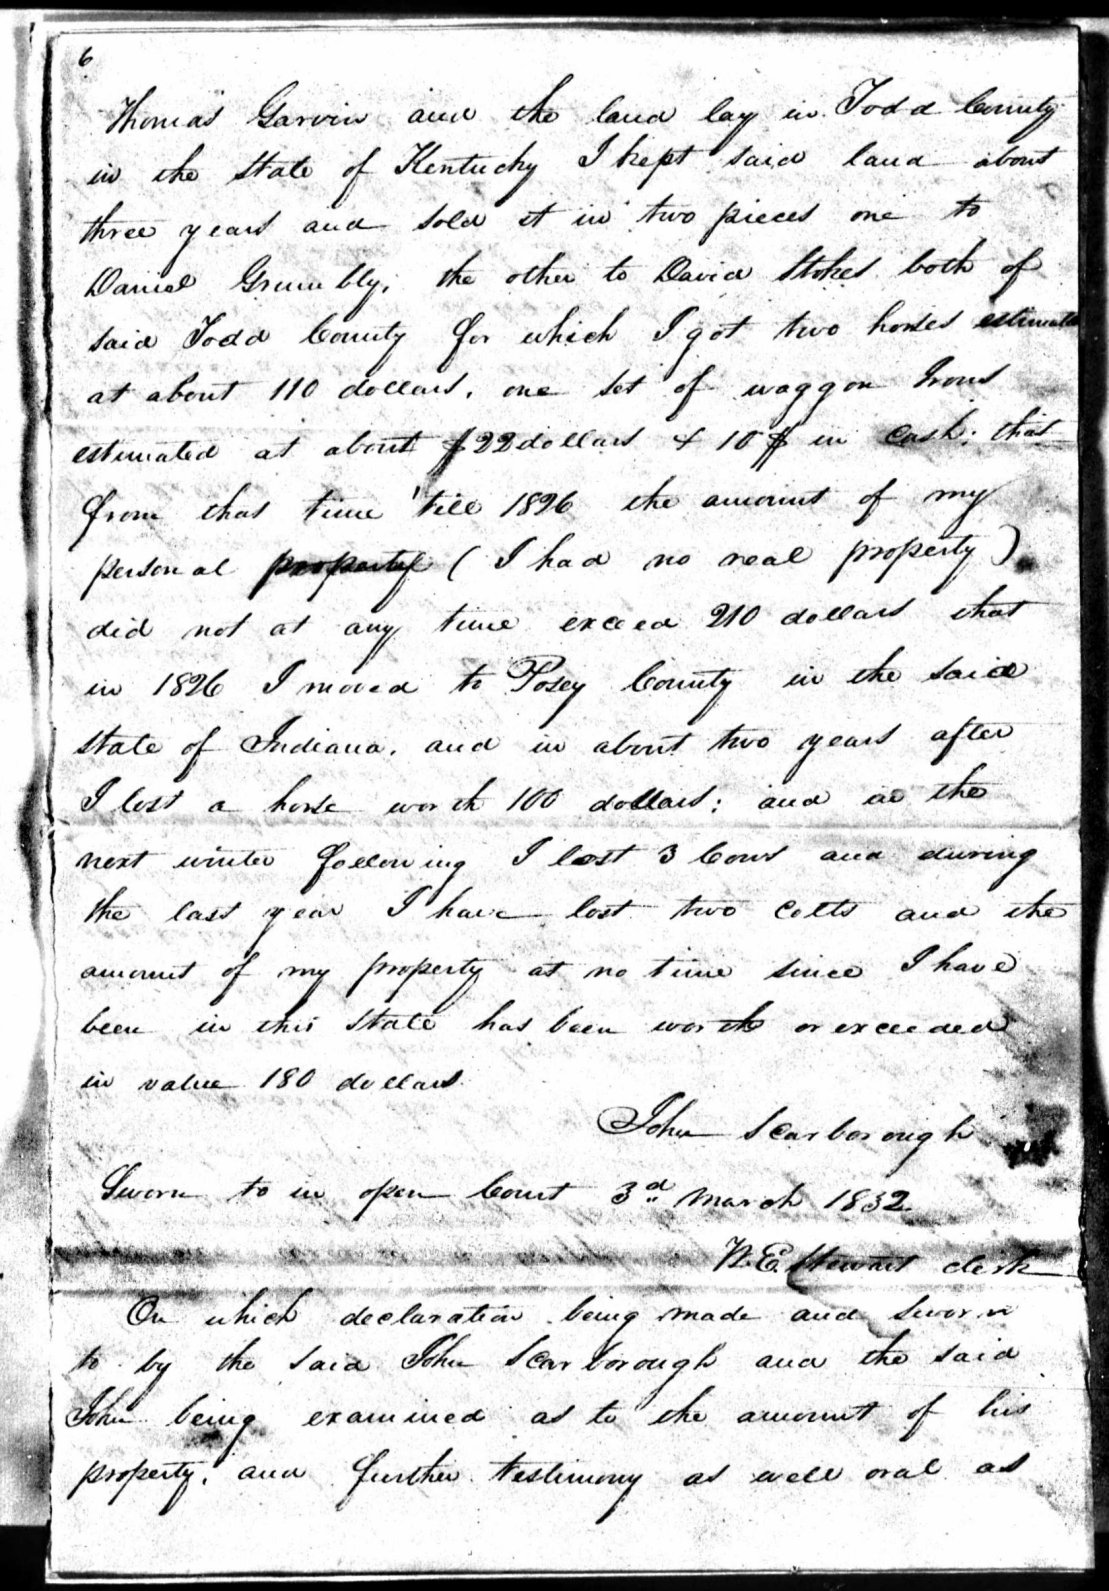 6
Thomas Garvin and the land lay in Todd County
in the State of Kentucky I kept said land about
three years and sold it in two pieces one to
Daniel Grumbly, the other to David Stokes both of
said Todd County for which I got two horses estimated
at about 110 dollars, one set of waggon Irons
estimated at about $22 dollars & 10 $ in Cash; that
from that time 'till 1826 the amount of my
personal property ( I had no real property )
did not at any time exceed 210 dollars that
in 1826 I moved to Posey County in the said
state of Indiana. and in about two years after
I lost a horse worth 100 dollars; and in the
next winter following I lost 3 Cows and during
the last year I have lost two Colts and the
amount of my property at no time since I have
been in this State has been worth or exceeded
in value 180 dollars
John Scarborough
Sworn to in open Court 3d March 1832
W. E. Stewart clerk
On which declaration being made and sworn
to by the said John Scarborough and the said
John being examined as to the amount of his
property, and further testimony as well oral as